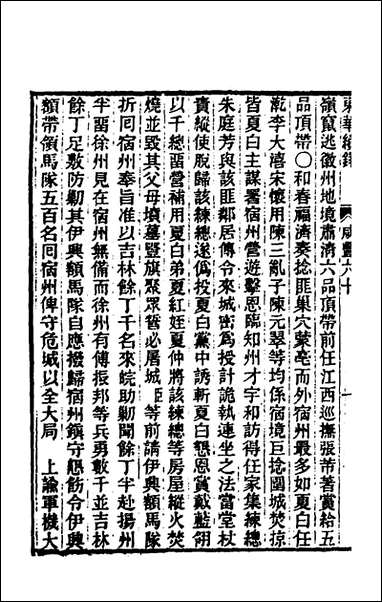 東華續錄　咸豐六十
嶺竄逃徽州地境肅淸六品頂帶前任江西巡撫張芾著賞給五
品頂帶〇和春福濟奏捻匪巢穴蒙亳而外宿州最多如夏白任
乾李大濇宋懷用陳三亂子陳元翠等均係宿境巨捻圍城焚掠
皆夏白主謀署宿州營遊擊恩臨知州才宇和訪得任家集練總
朱庭芳與該匪鄰居傳令來城密爲授計詭執連坐之法當堂杖
責縱使脫歸該練總遂僞投夏白黨中誘斬夏白懇恩賞戴藍翎
以千總留營補用夏白弟夏紅姪夏仲將該練總等房屋縱火焚
燒並毀其父母墳墓豎旗聚眾誓必屠城臣等前請伊興額馬隊
折囘宿州奉旨准以吉林餘丁千名來皖助勦聞餘丁半赴揚州
半留徐州見在宿州無備而徐州有傅振邦等兵勇數千並吉林
餘丁足敷防勦其伊興額馬隊自應撥歸宿州鎭守懇飭令伊興
額帶領馬隊五百名囘宿州俾守危城以全大局　上諭軍機大